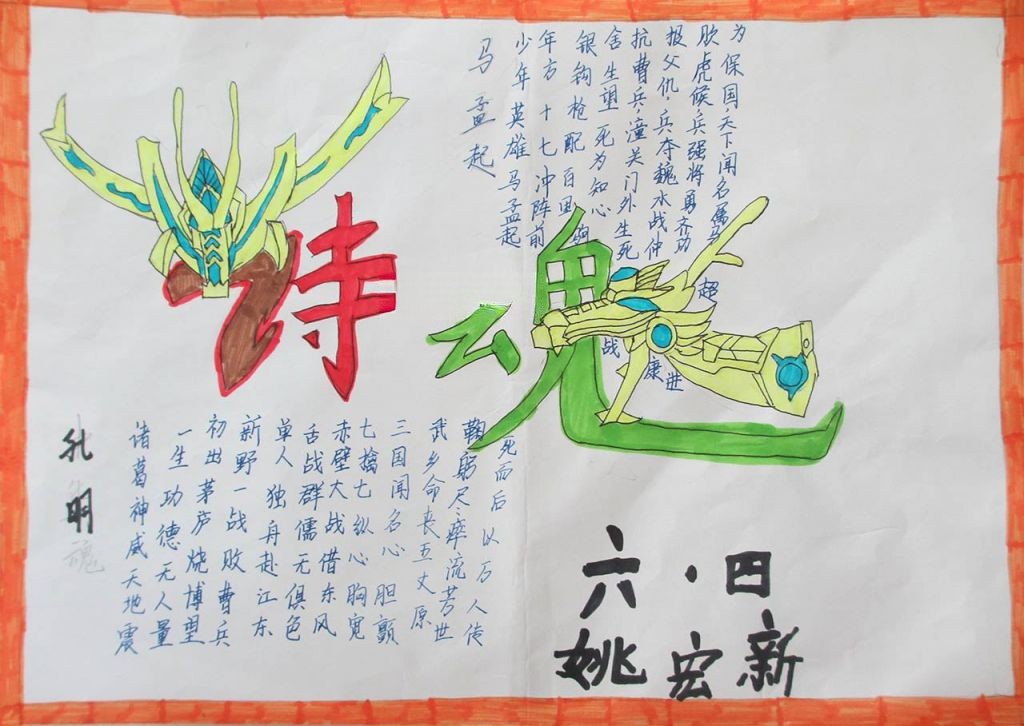 诗魂
马孟起
少年英雄马孟起
年方十七冲阵前
银钩枪配百里驹
舍生望死为知心
抗曹兵,潼关门外生死战
报父仇,兵夺魏水战仲康
败虎候兵强将勇齐功进
为保国,天下闻名属马超
孔明
诸葛神威天地震
一生功德无人量
初出茅庐烧博望
新野一战败曹兵
单人独舟赴江东
舌战群儒无俱色
赤壁大战借东风
七擒七纵心胸宽
三国闻名心胆颤
武乡命丧五丈原
鞠躬尽瘁流芳世
死而后以万人传
六·四
姚宏新